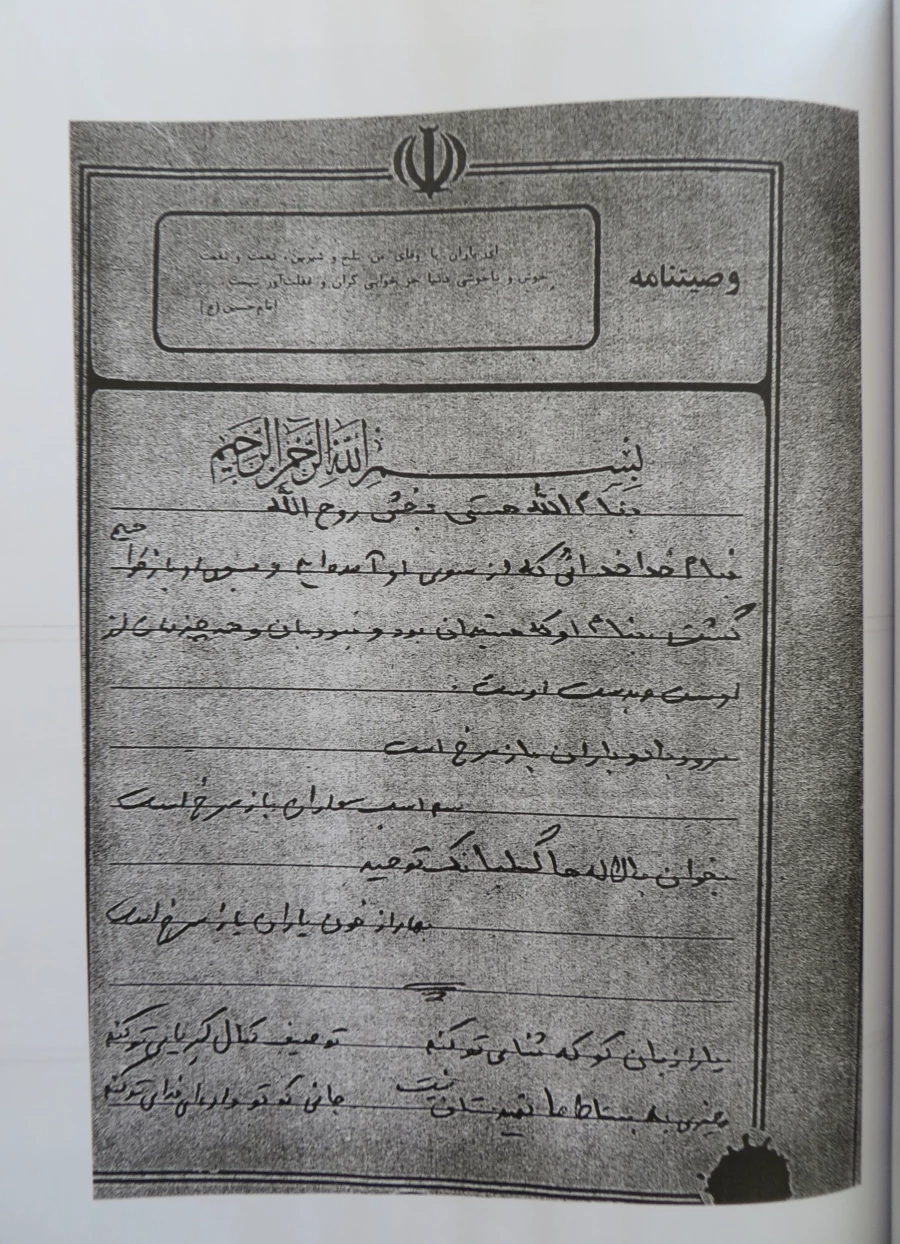 وصیتنامه
ای یاران با وفای من تلخ و شیرین، نعمت و نقمت
خوش و ناخوشی دنیا جز خوابی گران و غفلت‌آور نیست
امام حسین (ع)
بسم الله الرحمن الرحیم
بنام الله هستی بخش روح الله
بنام خدا خدائی که از سوی او آمده‌ایم و بسوی او باز خواهیم
گشت بنام او که هستیمان بود و نبودمان و همه چیزمان از
اوست و بدست اوست
سرود باد و باران باز سرخ است
بهاران باز سرخ است
بخوان با لاله‌ها گلبانگ توحید
بهار از خون یاران باز سرخ است
یا رب زبان کو که ثنای تو کنم توصیف کمال کبریایی تو کنم
چیزی به بساط ما تهیدستان نیست جانی که تو داده‌ای فدای تو کنم